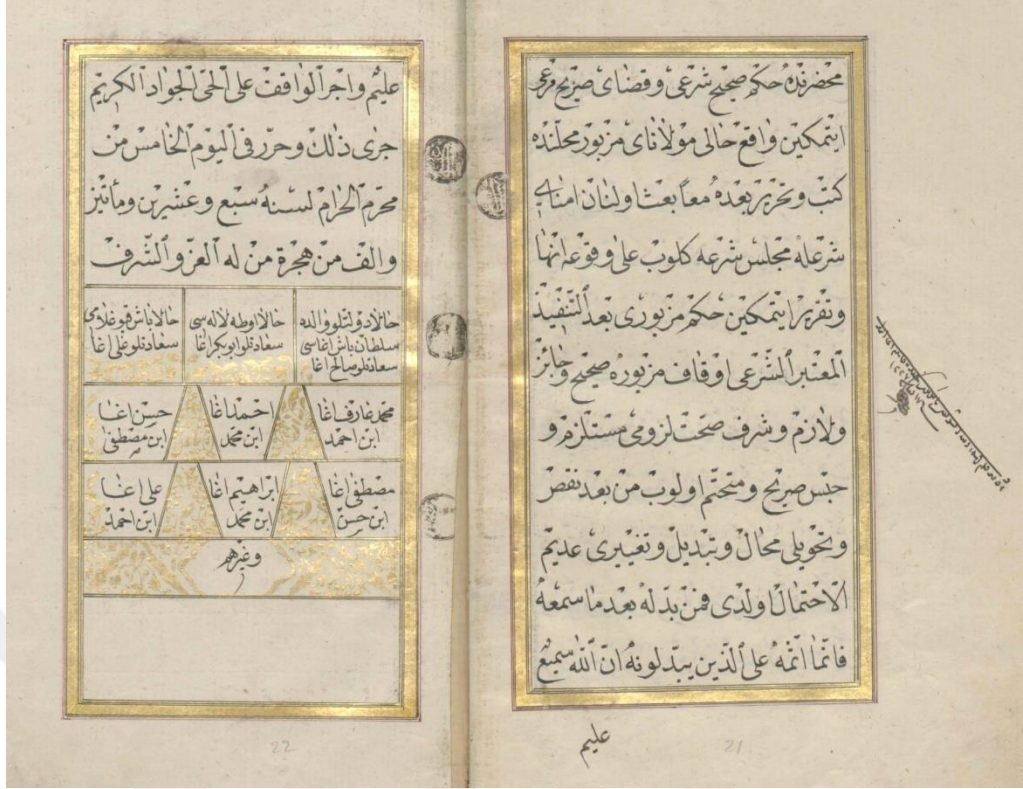 محضرنده حكم صحيح شرعى و قضاى صريح مرعى
ايتمكين واقع حالى مولاناى مزبور محلنده
كتب و تحرير بعده معاً بعث اولنان امناى
شرعله مجلس شرعه كلوب على وقوعه انها
و تقرير ايتمكين حكم مزبورى بعد التنفيذ
المعتبر الشرعى اوقاف مزبوره صحيح و جائز
و لازم و شرف صحت لزومى مستلزم و
حبس صريح و متحتم اولوب من بعد نقض
و تحويلى محال و تبديل و تغييرى عديم
الاحتمال اولدى فمن بدله بعد ما سمعه
فانما اثمه على الذين يبدلونه ان الله سميع
عليم
21
عليم و اجر الواقف على الحى الجواد الكريم
جرى ذلك و حرر فى اليوم الخامس من
محرم الحرام لسنة سبع و عشرين و مأتين
و الف من هجرة من له العز و الشرف
حالا دولتلو والده سلطان باش اغاسى سعادتلو صالح اغا
حالا اوطه لالاسى سعادتلو ابوبكر اغا
حالا باش قپو غلامى سعادتلو على اغا
محمد عارف اغا ابن احمد
احمد اغا ابن محمد
حسن اغا ابن مصطفى
مصطفى اغا ابن حسن
ابراهيم اغا ابن محمد
على اغا ابن احمد
و غيرهم
22